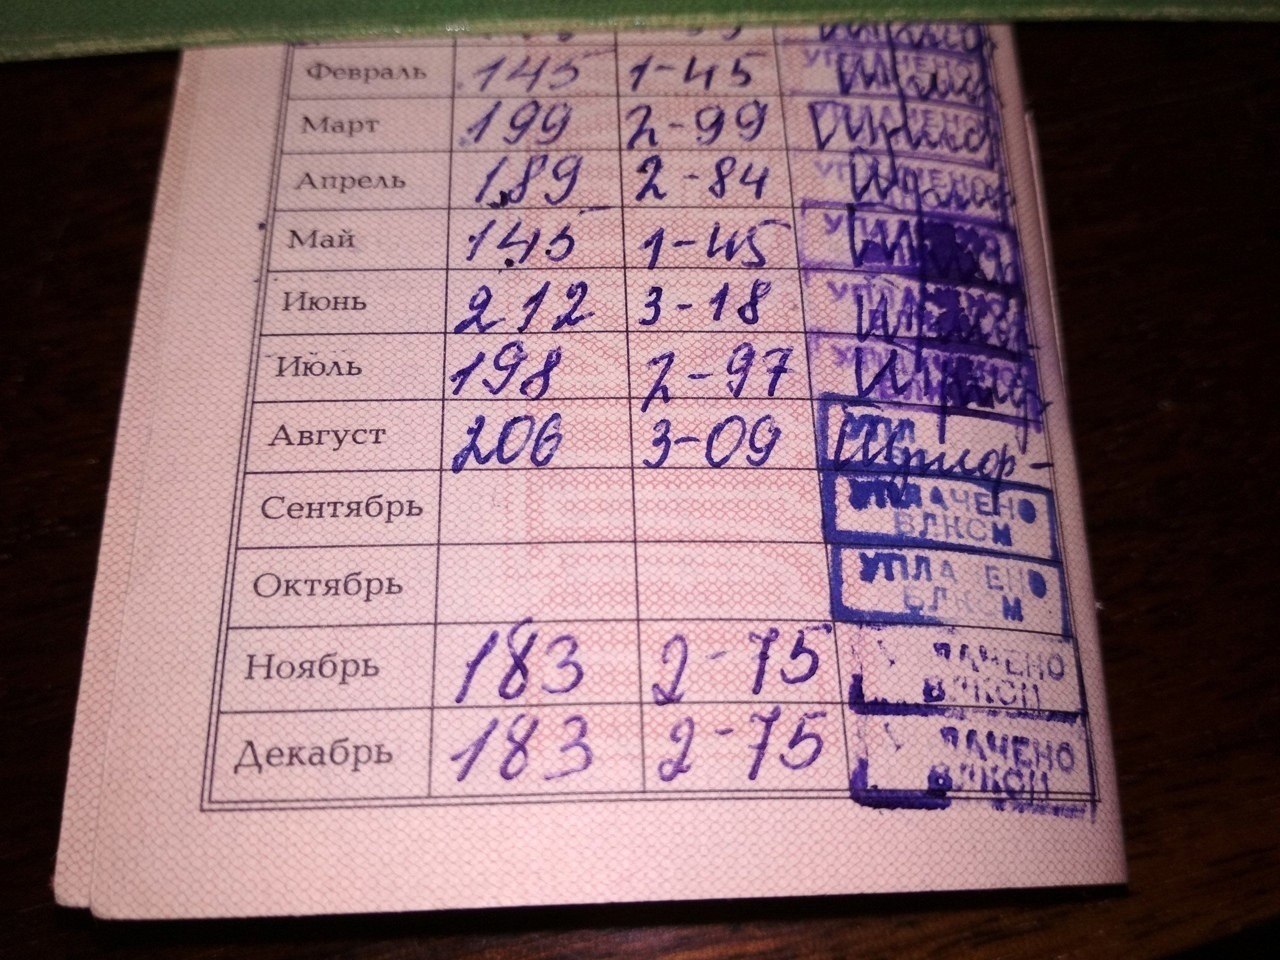 Февраль 145 1-45 УПЛАЧЕНО
Март 199 2-99 УПЛАЧЕНО
Апрель 189 2-84 УПЛАЧЕНО
Май 145 1-45 УПЛАЧЕНО
Июнь 212 3-18 УПЛАЧЕНО
Июль 198 2-97 УПЛАЧЕНО
Август 206 3-09
Сентябрь УПЛАЧЕНО
ВЛКСМ
Октябрь УПЛАЧЕНО
ВЛКСМ
Ноябрь 183 2-75 УПЛАЧЕНО
ВЛКСМ
Декабрь 183 2-75 УПЛАЧЕНО
ВЛКСМ